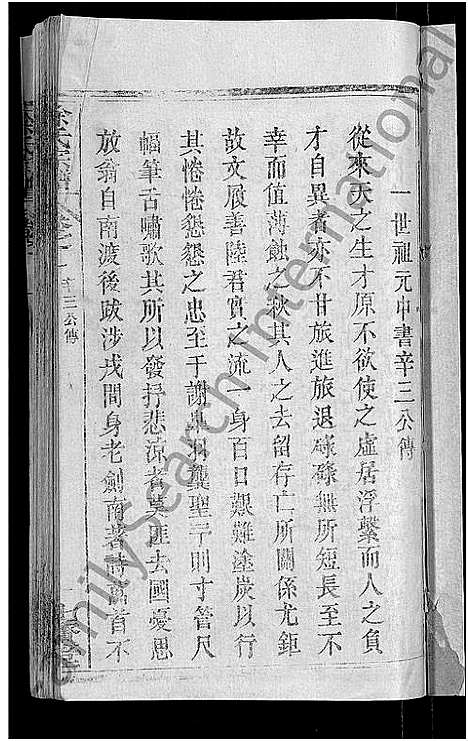 一世祖元中書辛三公傳
從來天之生才原不欲使之虛居浮繫而人之負
才自異者亦不甘旅進旅退碌碌無所短長至不
幸而值薄蝕之秋其人之去留存亡所關係尤鉅
故文履善陸君實之流一身百口艱難塗炭以行
其惓惓懇懇之忠至于謝臯羽龔聖予則寸管尺
幅筆舌嘯歌其所以發抒悲涼者莫匪去國憂思
放翁自南渡後跋涉戎間身老劍南著詩萬首不
辛三公傳
FamilySearch International